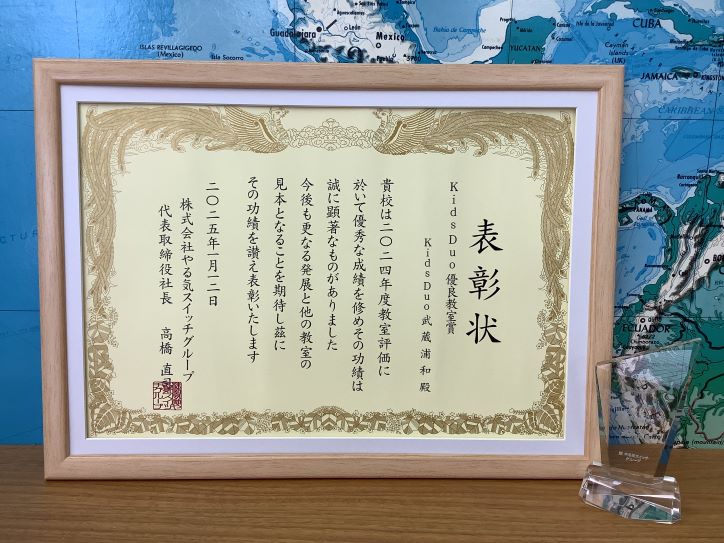 表彰状
KidsDuo優良教室賞
KidsDuo武蔵浦和 殿
貴校は二〇二四年度教室評価に
於いて優秀な成績を修めその功績は
誠に顕著なものがありました
今後も更なる発展と他の教室の
見本となることを期待し茲に
その功績を讃え表彰いたします
二〇二五年一月一二日
株式会社やる気スイッチグループ
代表取締役社長 高橋 直司
ISLAS REVILLAGIGEDO
(Mexico)
Isla Socorro
Guadalajara
León
Mexico
Bahia de Campeche
Progreso
Campeche
YUCATAN
CUBA
Cayman
Islands
(UK)
JAMAICA
KINGSTON
CARIBBEAN
PANAMA
ECUADOR